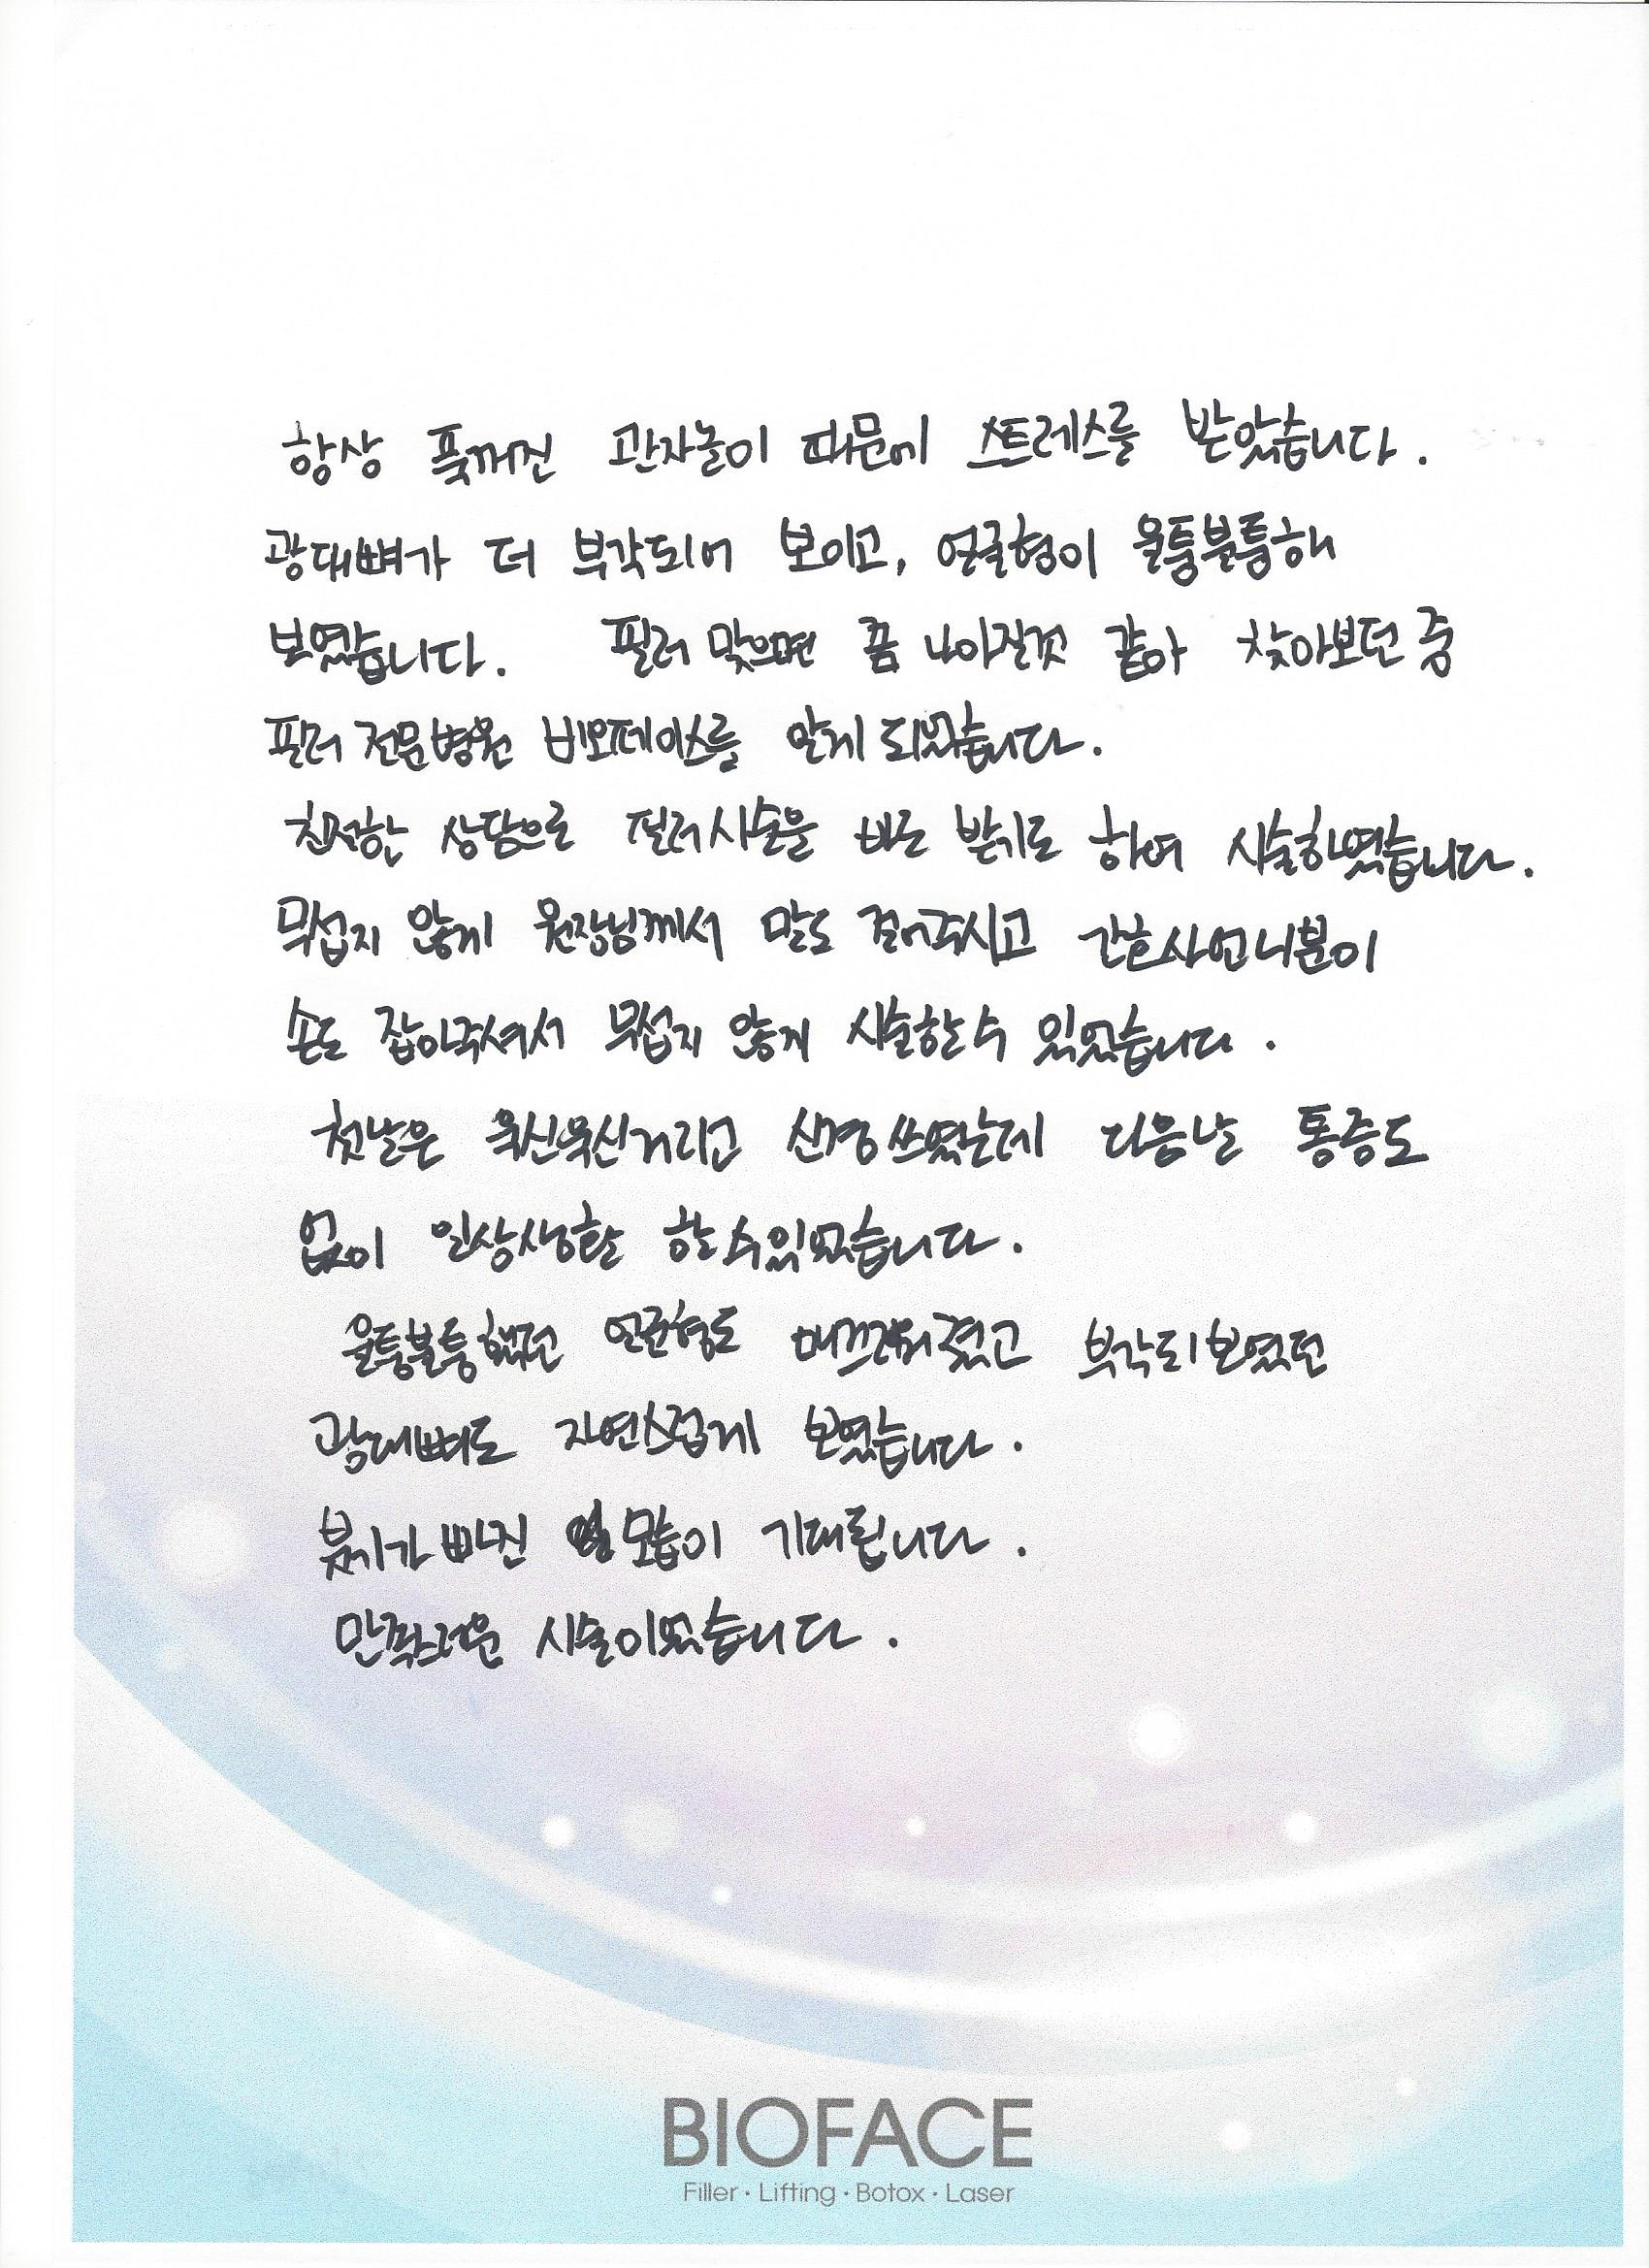 항상 푹꺼진 관자놀이 때문에 스트레스를 받았습니다.
광대뼈가 더 부각되어 보이고, 얼굴형이 울퉁불퉁해
보였습니다. 필러 맞으면 좀 나아질것 같아 찾아보던 중
필러 전문병원 비오페이스를 알게 되었습니다.
친절한 상담으로 필러시술을 바로 받기로 하여 시술하였습니다.
무섭지 않게 원장님께서 말도 걸어주시고 간호사언니분이
손도 잡아주셔서 무섭지 않게 시술할수 있었습니다.
첫날은 욱신욱신거리고 신경쓰였는데 다음날 통증도
없이 일상생활 할수있었습니다.
울퉁불퉁했던 얼굴형도 매끄러워졌고 부각되보였던
광대뼈도 자연스럽게 보였습니다.
붓기가 빠진 모습이 기대됩니다.
만족스러운 시술이었습니다.
BIOFACE
Filler · Lifting · Botox · Laser